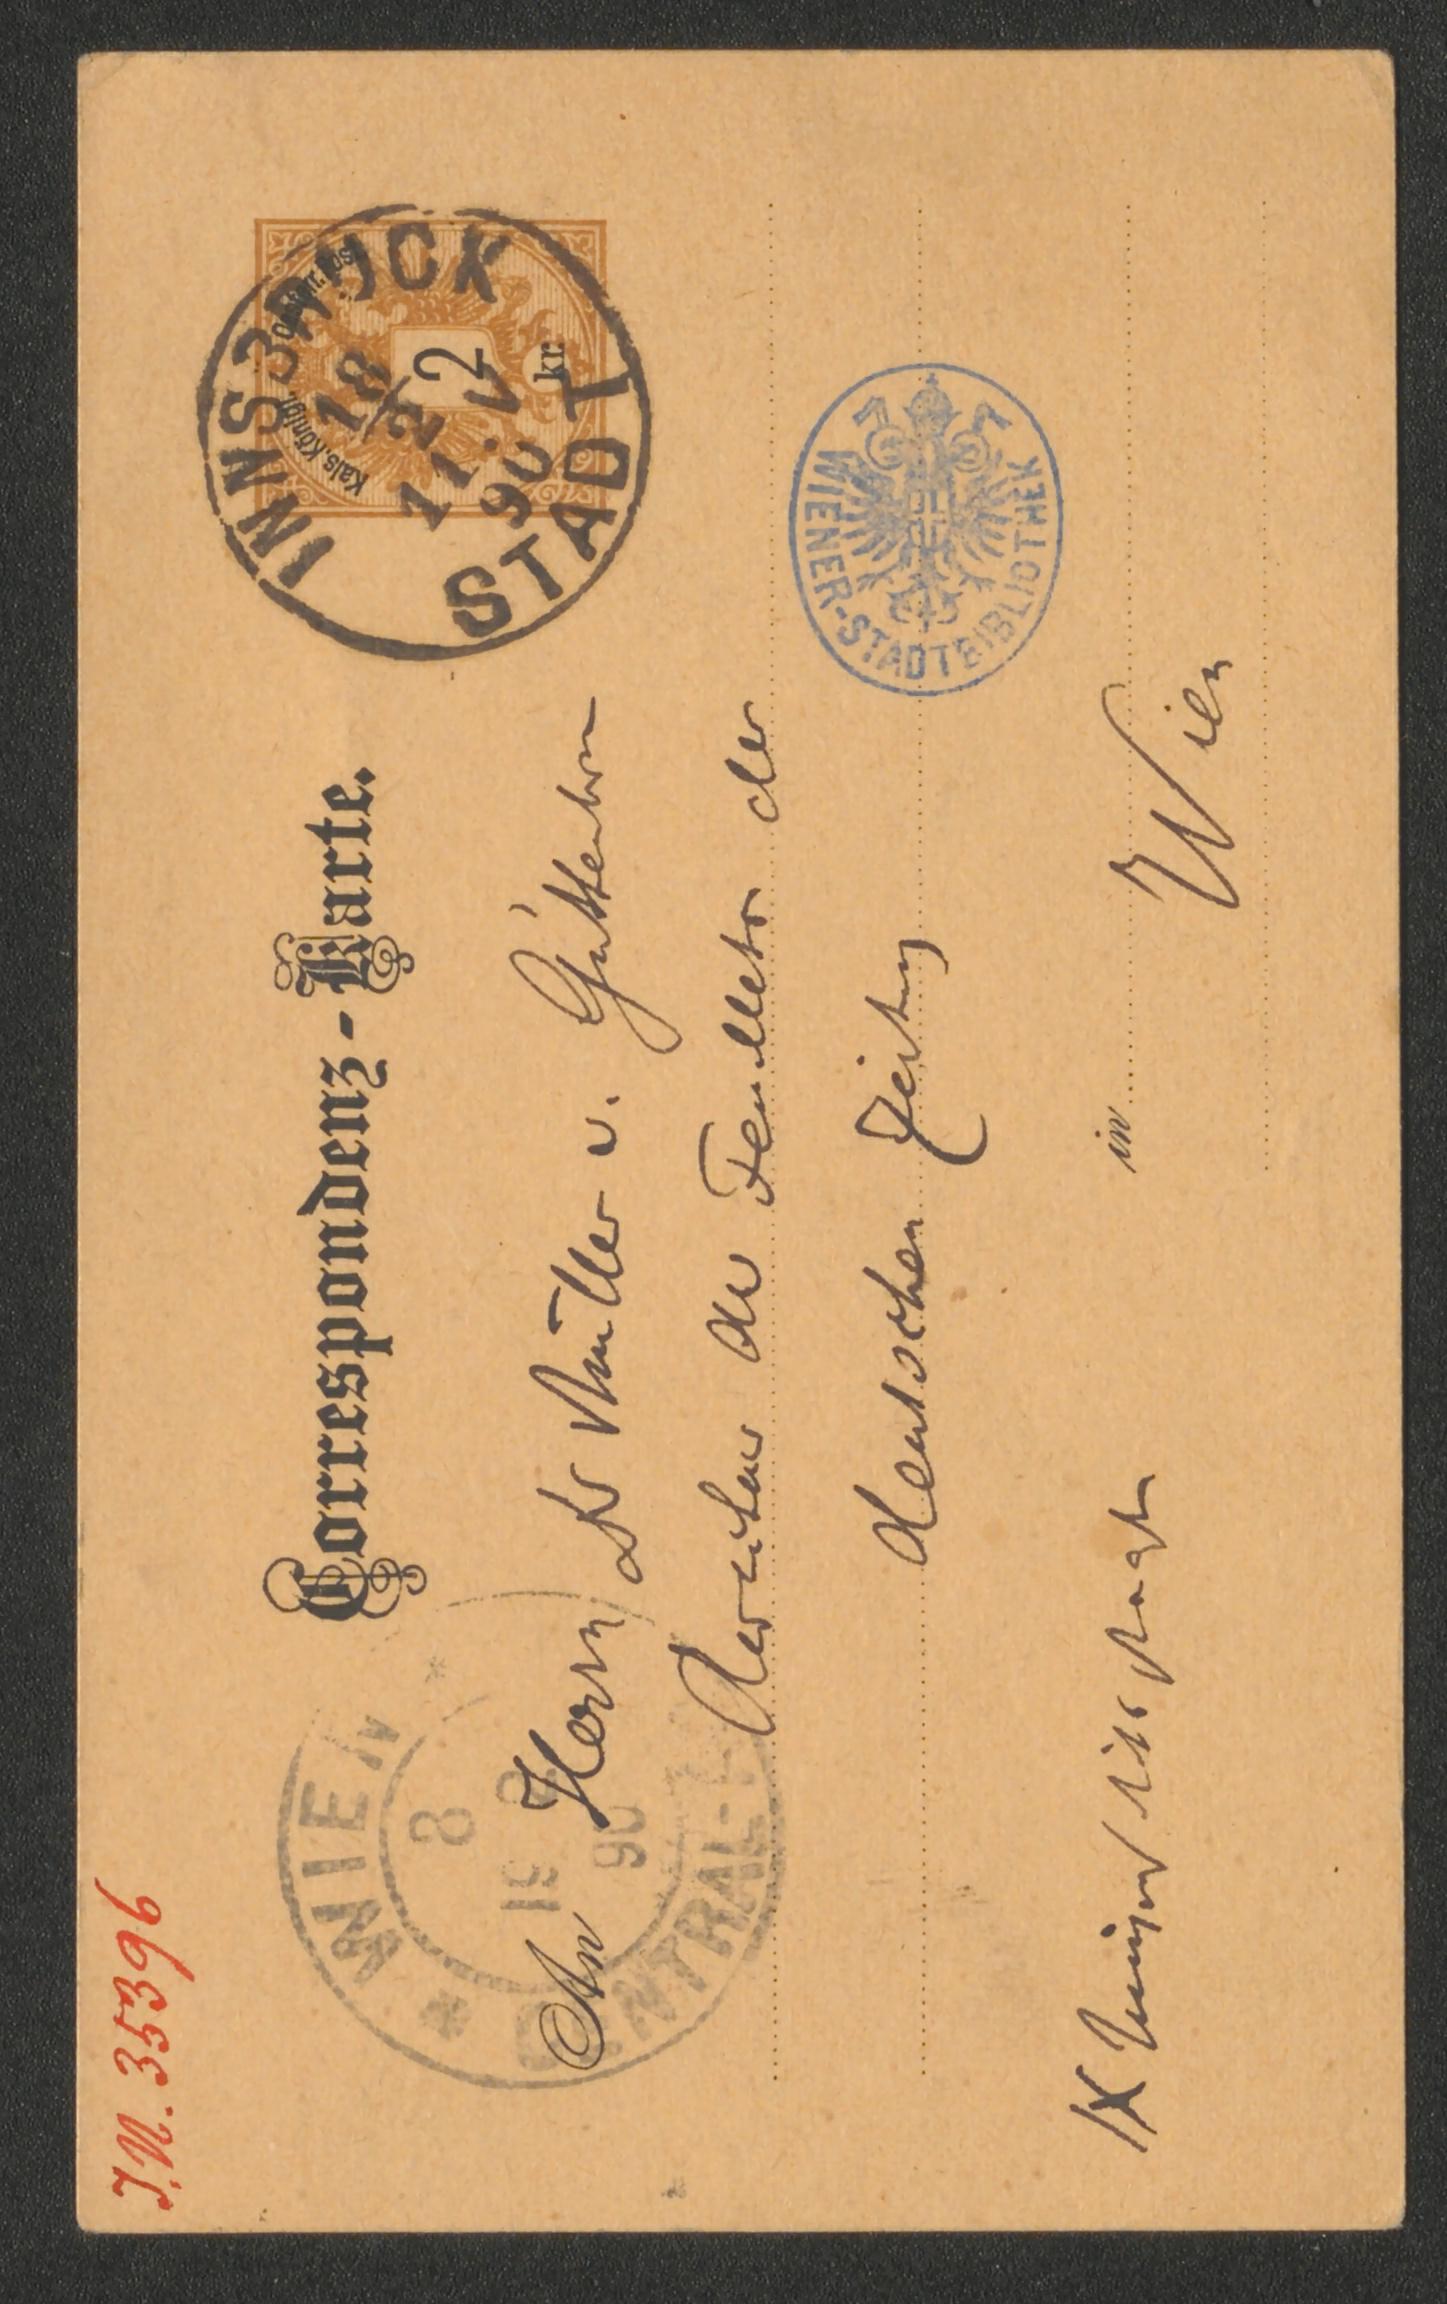 J.N. 35396
Correspondenz-Karte.
Kais. Königl. Österr. Post
2
kr.
INNSBRUCK
18/2
11.V
90
STADT
WIEN
8
19 2
90
CENTRAL-
An Herrn Dr Müller v. Guttenbrun
der Feuilleton der
deutschen Zeitung
WIENER-STADTBIBLIOTHEK
in Wien
IX